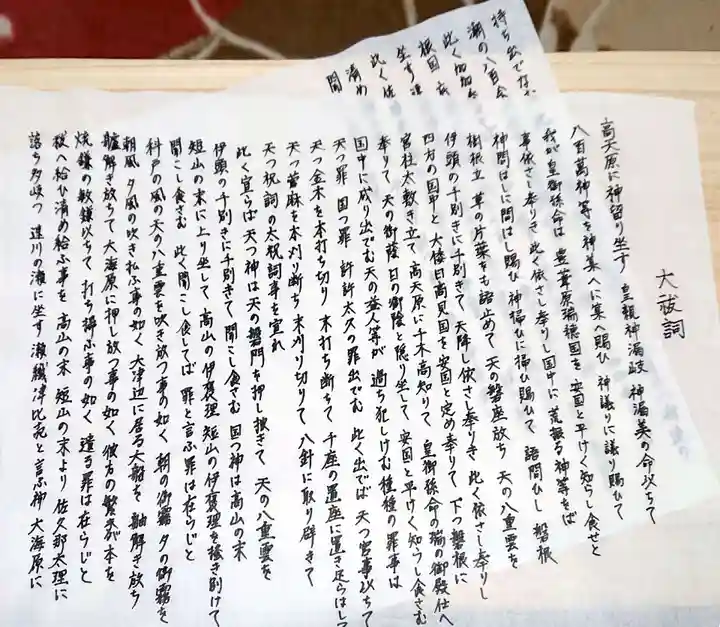 大祓詞
高天原に神留り坐す 皇親神漏岐 神漏美の命以ちて
八百萬神等を神集へに集へ賜ひ 神議りに議り賜ひて
我が皇御孫命は 豊葦原瑞穂国を 安国と平けく知らし食せと
事依さし奉りき 此く依さし奉りし国中に 荒振る神等をば
神問はしに問はし賜ひ 神掃ひに掃ひ賜ひて 語問ひし 磐根
樹根立 草の片葉をも語止めて 天の磐座放ち 天の八重雲を
伊頭の千別きに千別きて 天降し依さし奉りき 此く依さし奉りし
四方の国中と 大倭日高見国を安国と定め奉りて 下つ磐根に
宮柱太敷き立て 高天原に千木高知りて 皇御孫命の瑞の御殿仕へ
奉りて 天の御蔭 日の御蔭と隠り坐して 安国と平けく知ろし食さむ
国中に成り出でむ天の益人等が 過ち犯しけむ種種の罪事は
天つ罪 国つ罪 許許太久の罪出でむ 此く出でば 天つ宮事以ちて
天つ金木を本打ち切り 末打ち断ちて 千座の置座に置き足らはして
天つ菅麻を本刈り断ち 末刈り切りて 八針に取り辟きて
天つ祝詞の太祝詞事を宣れ
此く宣らば 天つ神は天の磐門を押し披きて 天の八重雲を
伊頭の千別きに千別きて 聞こし食さむ 国つ神は高山の末
短山の末に上り坐して 高山の伊褒理 短山の伊褒理を掻き別けて
聞こし食さむ 此く聞こし食してば 罪と言ふ罪は在らじと
科戸の風の天の八重雲を吹き放つ事の如く 朝の御霧 夕の御霧を
朝風 夕風の吹き払ふ事の如く 大津辺に居る大船を 舳解き放ち
艫解き放ちて 大海原に押し放つ事の如く 彼方の繁木が本を
焼鎌の敏鎌以ちて 打ち掃ふ事の如く 遺る罪は在らじと
祓へ給ひ清め給ふ事を 高山の末 短山の末より 佐久那太理に
落ち多岐つ 速川の瀬に坐す 瀬織津比売と言ふ神 大海原に
持ち出でな
潮の八百会
此く加加
根国 底
生す 速
此く佐
清め
聞